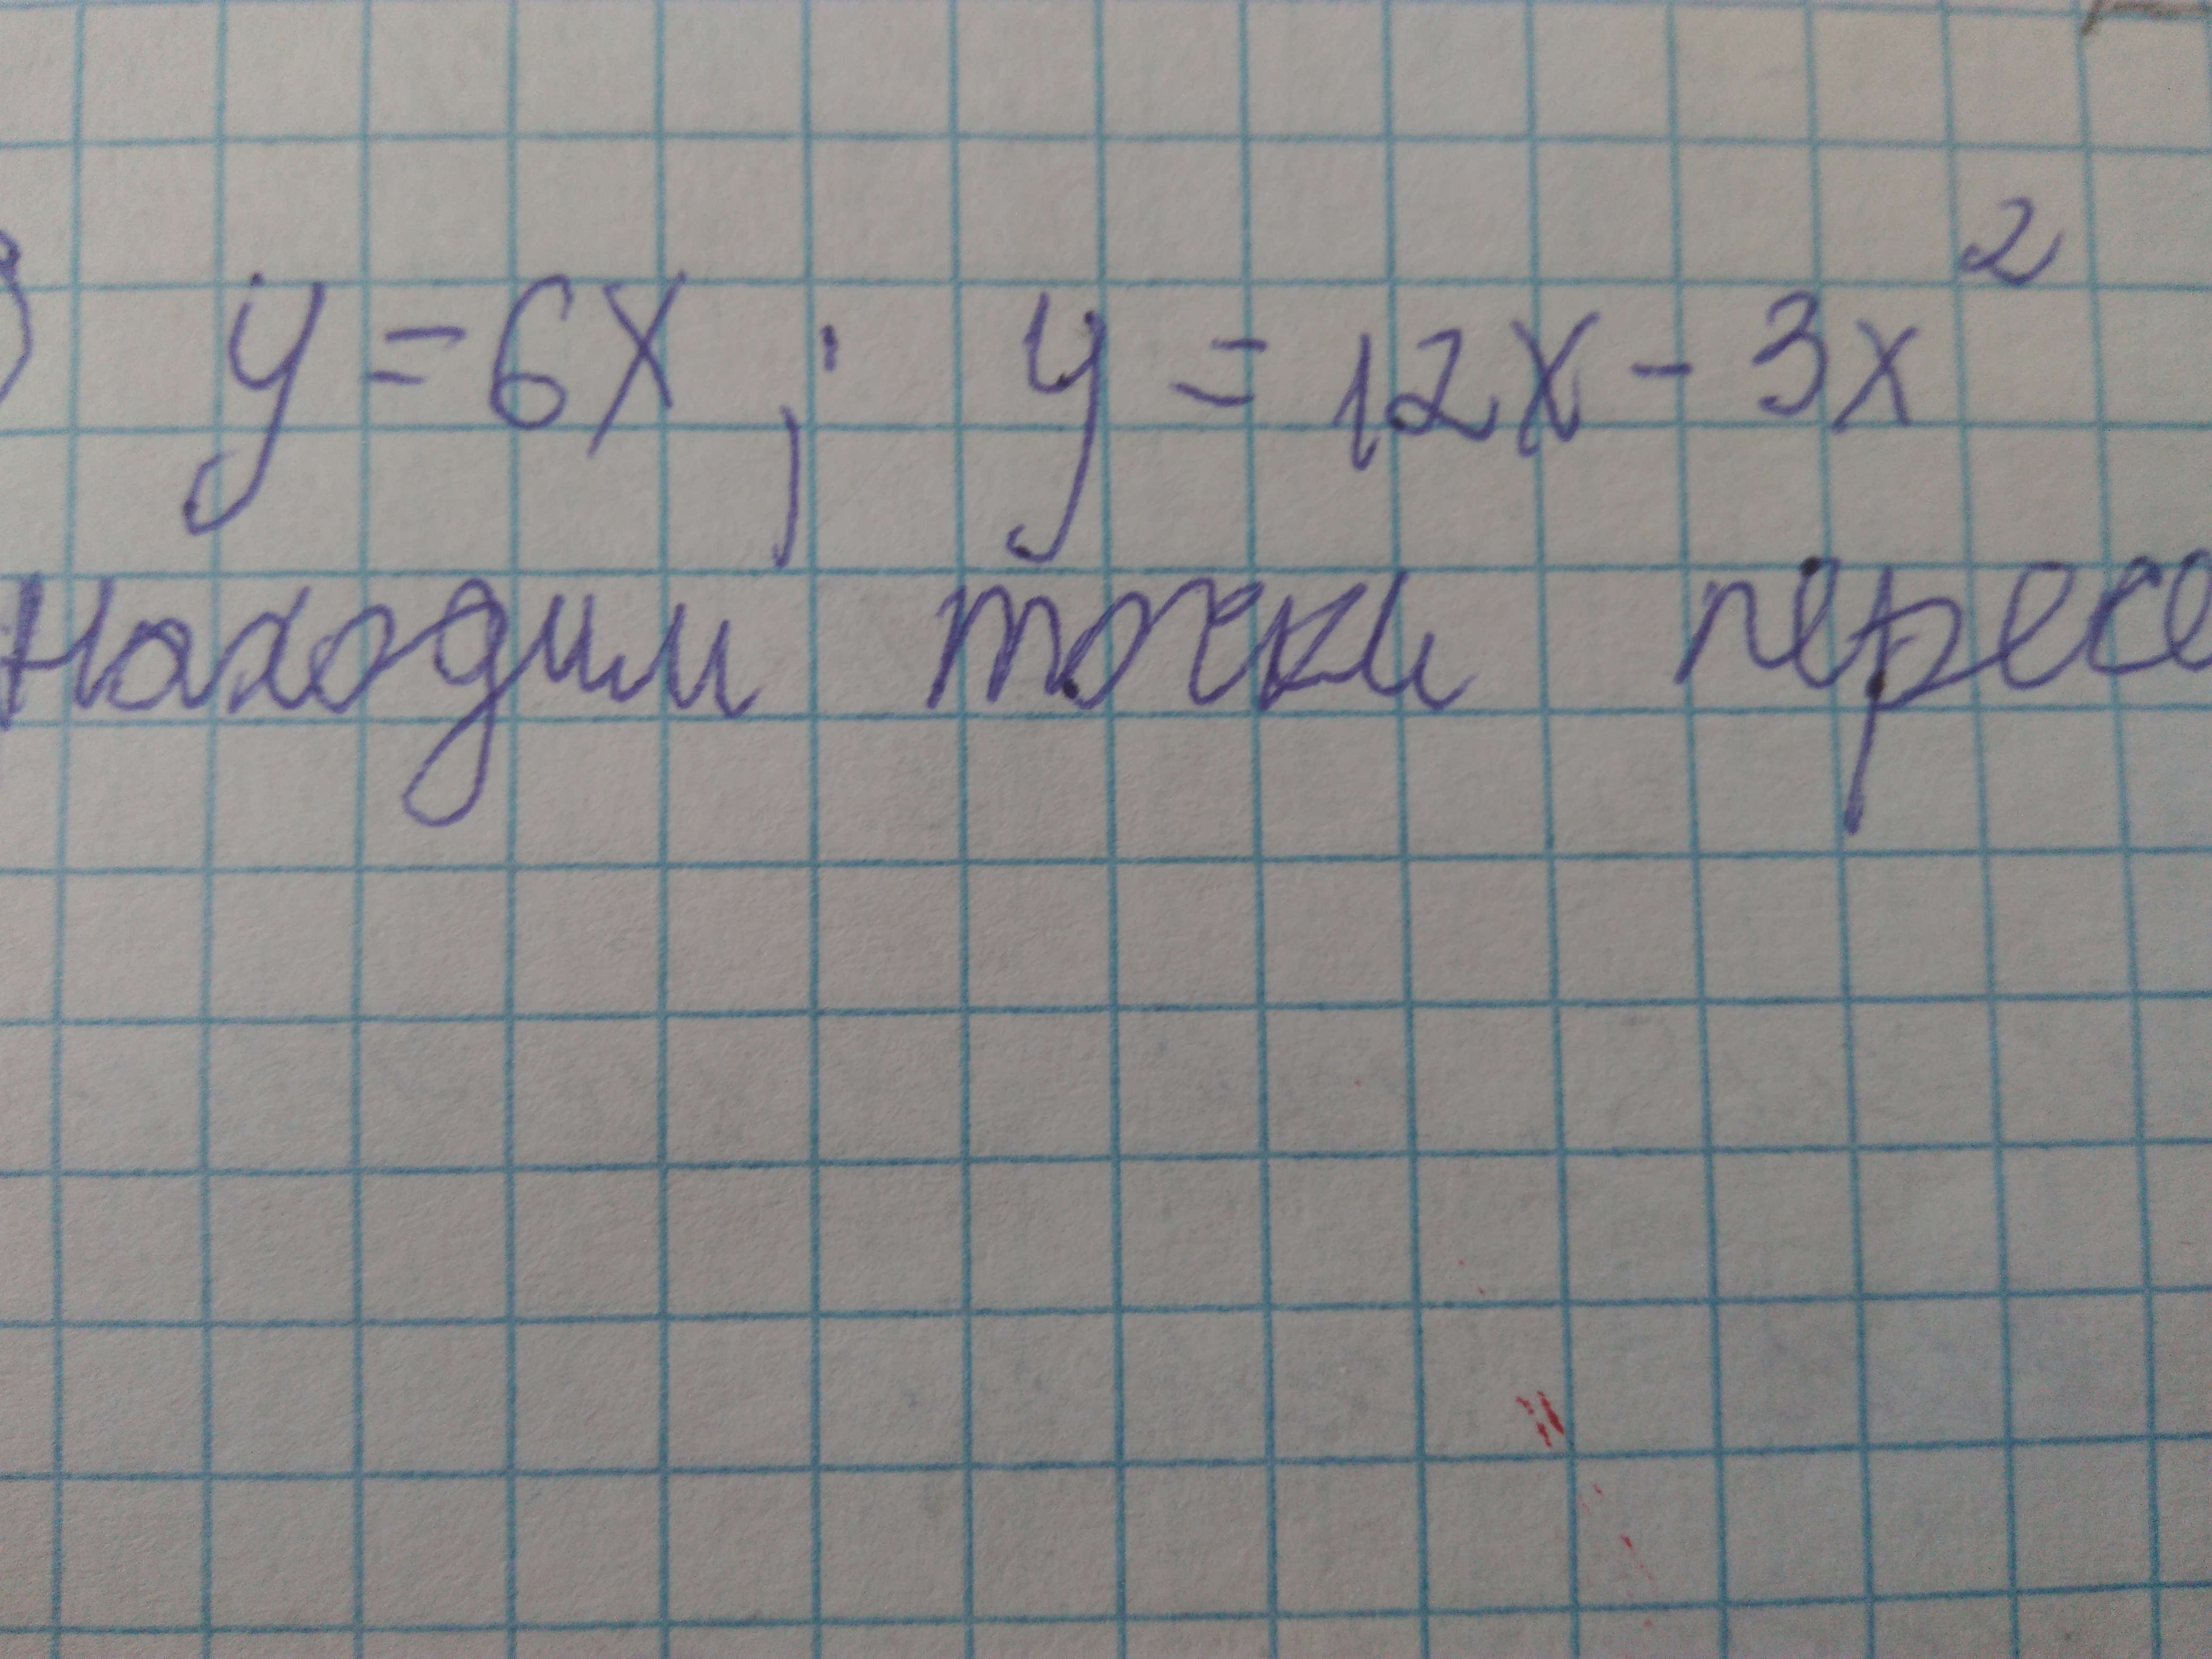 ) y = 6x ; y = 12x - 3x²
Находим точки пересе